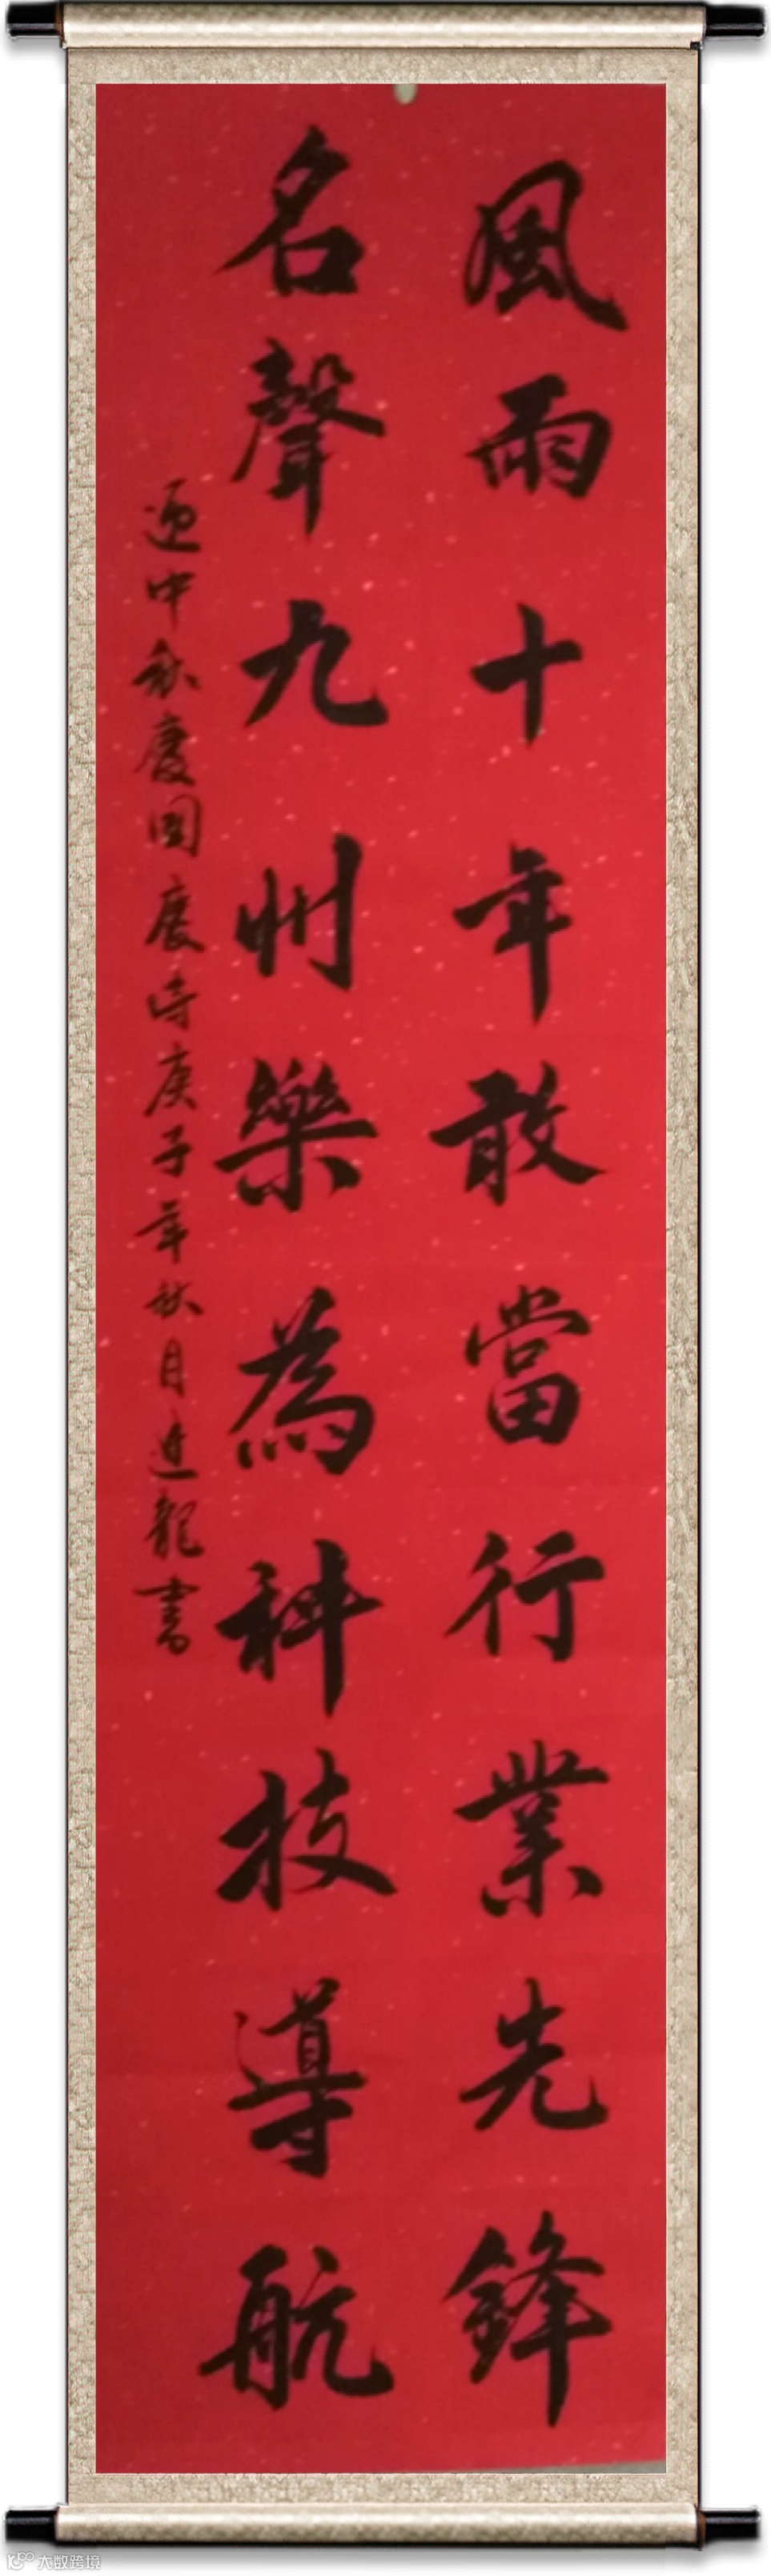 風雨十年敢當行業先鋒
名聲九州樂為科技導航
迎中秋慶国慶時庚子年秋月進龍書
大数跨境